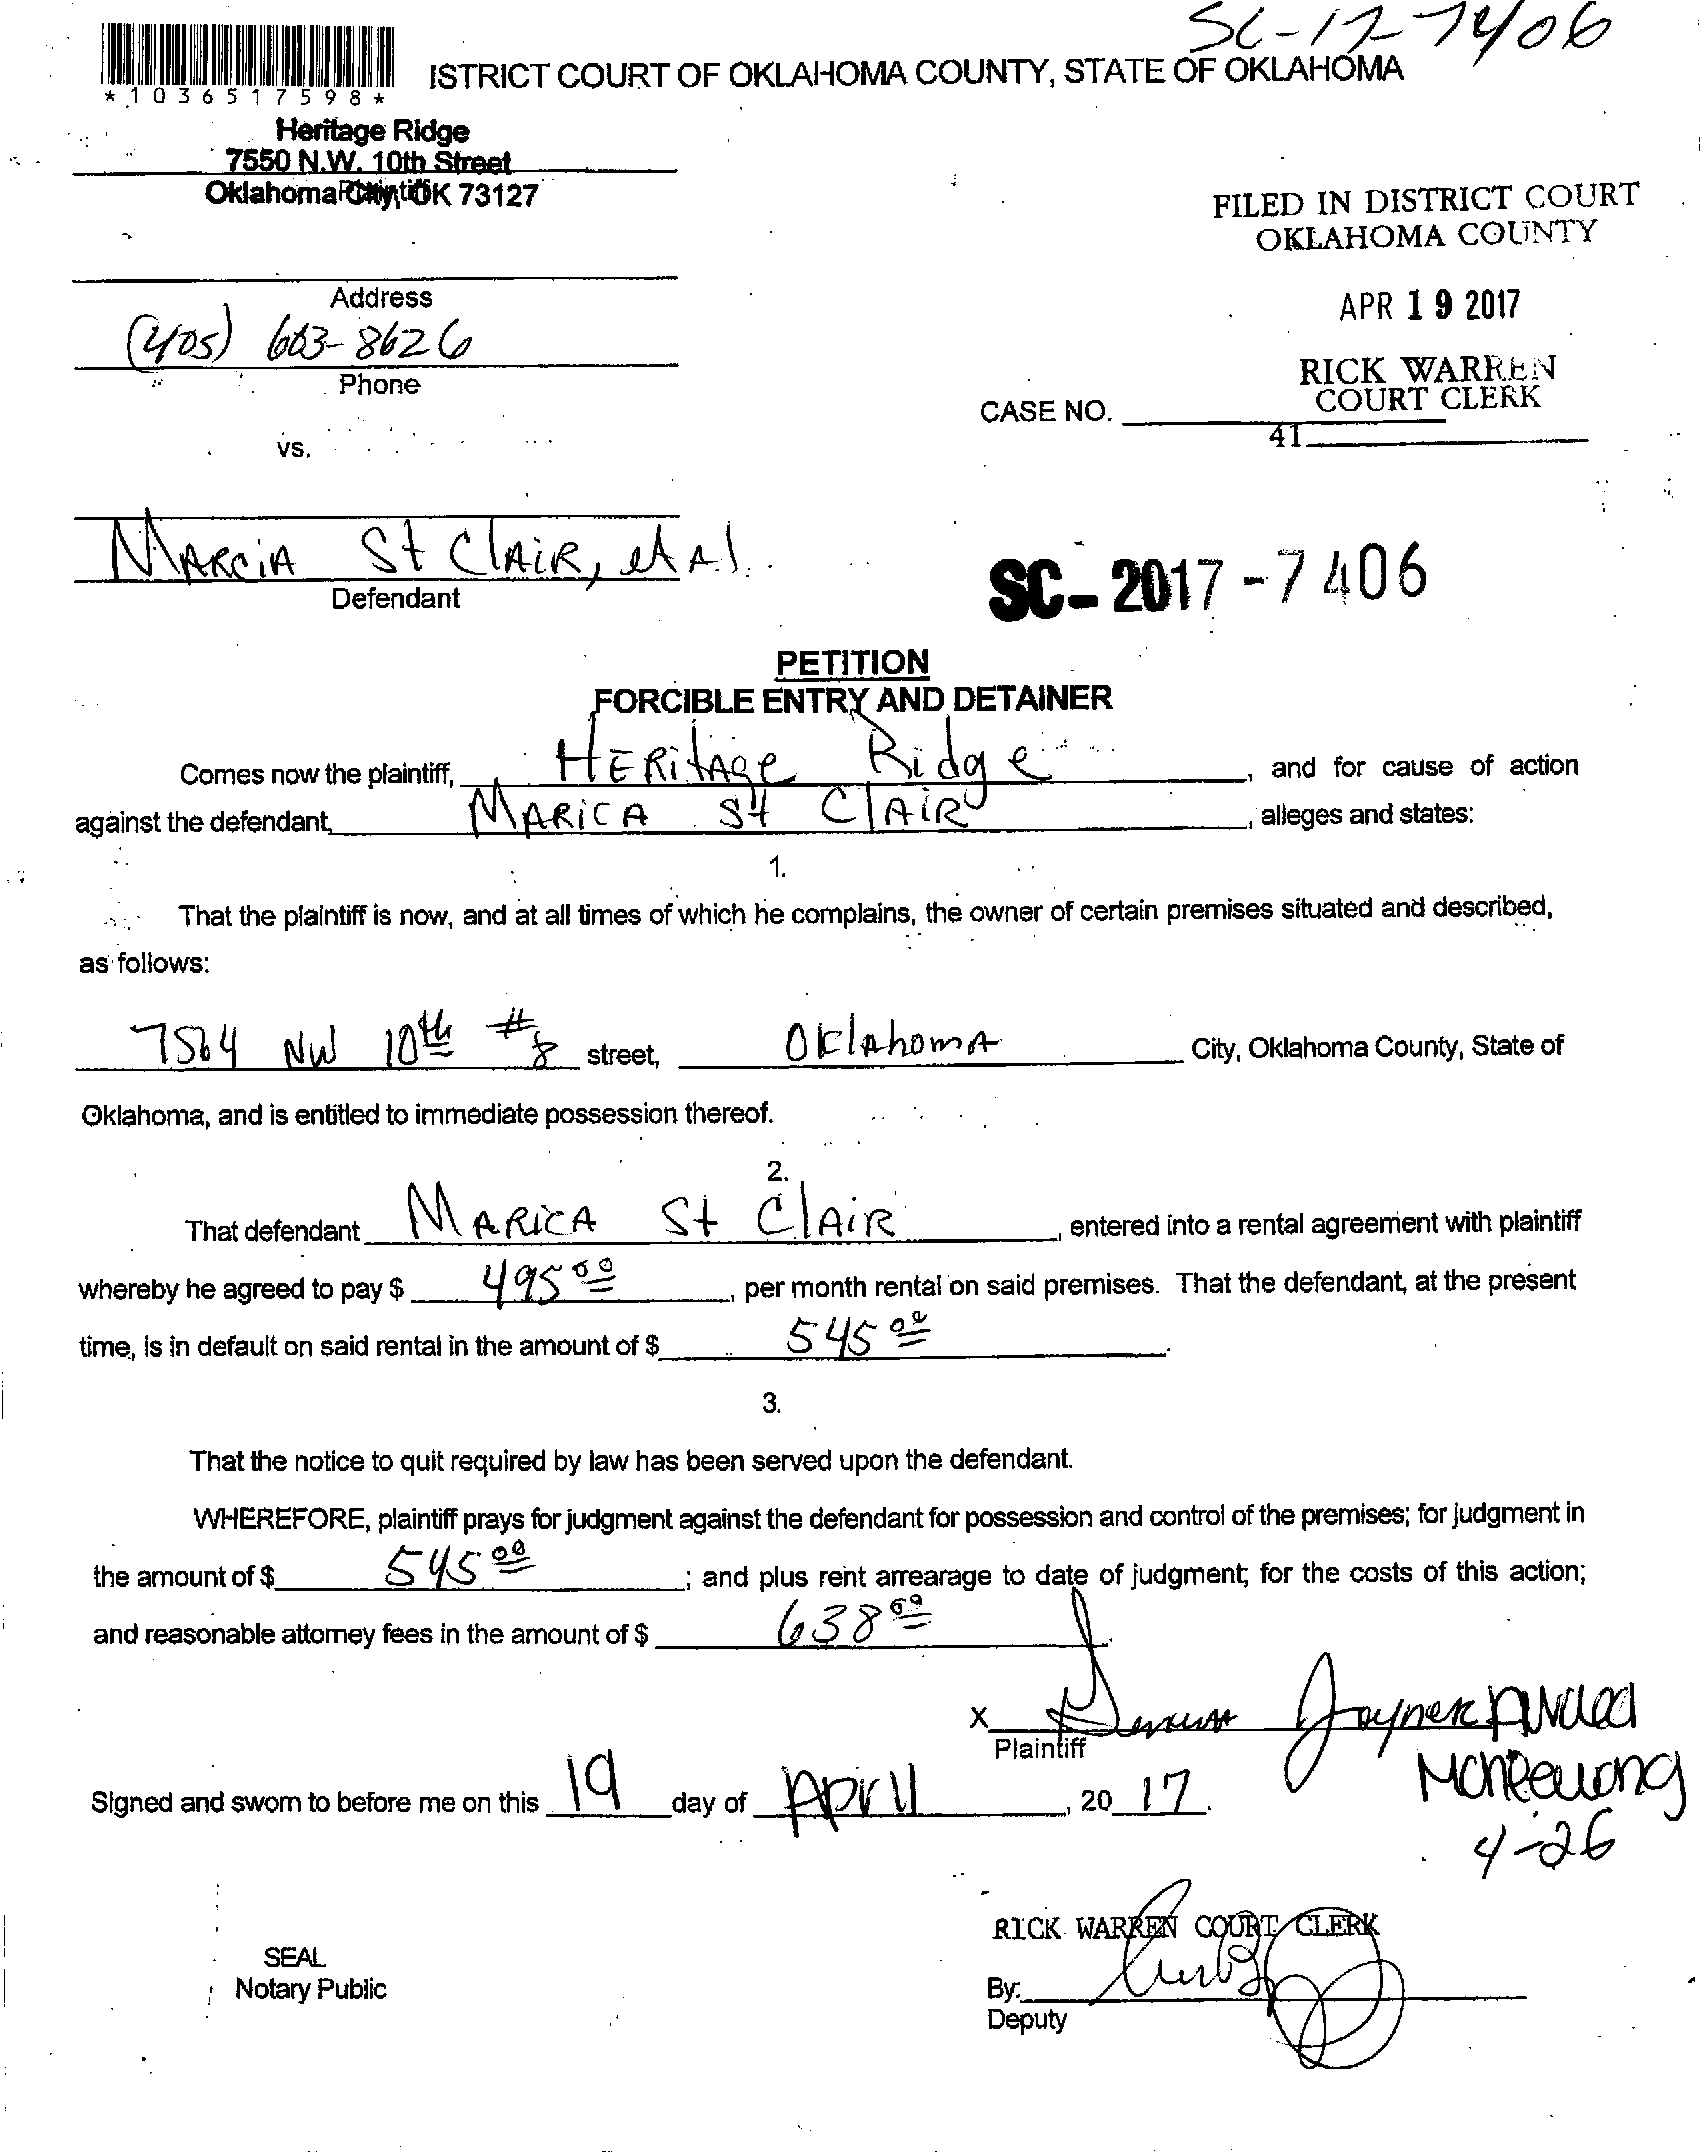 SC-17-7406
ISTRICT COURT OF OKLAHOMA COUNTY, STATE OF OKLAHOMA
*1036517598*
Heritage Ridge
7550 N.W. 10th Street
Oklahoma City, OK 73127
Plaintiff
FILED IN DISTRICT COURT
OKLAHOMA COUNTY
APR 19 2017
RICK WARREN
COURT CLERK
41
Address
(405) 603-8626
Phone
CASE NO.
vs.
MARCIA St CLAIR, et Al.
Defendant
SC-2017-7406
PETITION
FORCIBLE ENTRY AND DETAINER
Comes now the plaintiff, HERitAge Ridge, and for cause of action
against the defendant, MARICA St CLAIR, alleges and states:
1.
That the plaintiff is now, and at all times of which he complains, the owner of certain premises situated and described,
as follows:
7564 NW 10th #8 street, OklAhomA City, Oklahoma County, State of
Oklahoma, and is entitled to immediate possession thereof.
2.
That defendant MARICA St CLAIR, entered into a rental agreement with plaintiff
whereby he agreed to pay $ 495 00, per month rental on said premises. That the defendant, at the present
time, is in default on said rental in the amount of $ 545 00.
3.
That the notice to quit required by law has been served upon the defendant.
WHEREFORE, plaintiff prays for judgment against the defendant for possession and control of the premises; for judgment in
the amount of $ 545 00; and plus rent arrearage to date of judgment; for the costs of this action;
and reasonable attorney fees in the amount of $ 638 00
x Joyner
Plaintiff
Signed and sworn to before me on this 19 day of April, 20 17.
4-26
RICK WARREN COURT CLERK
SEAL
Notary Public
By:
Deputy